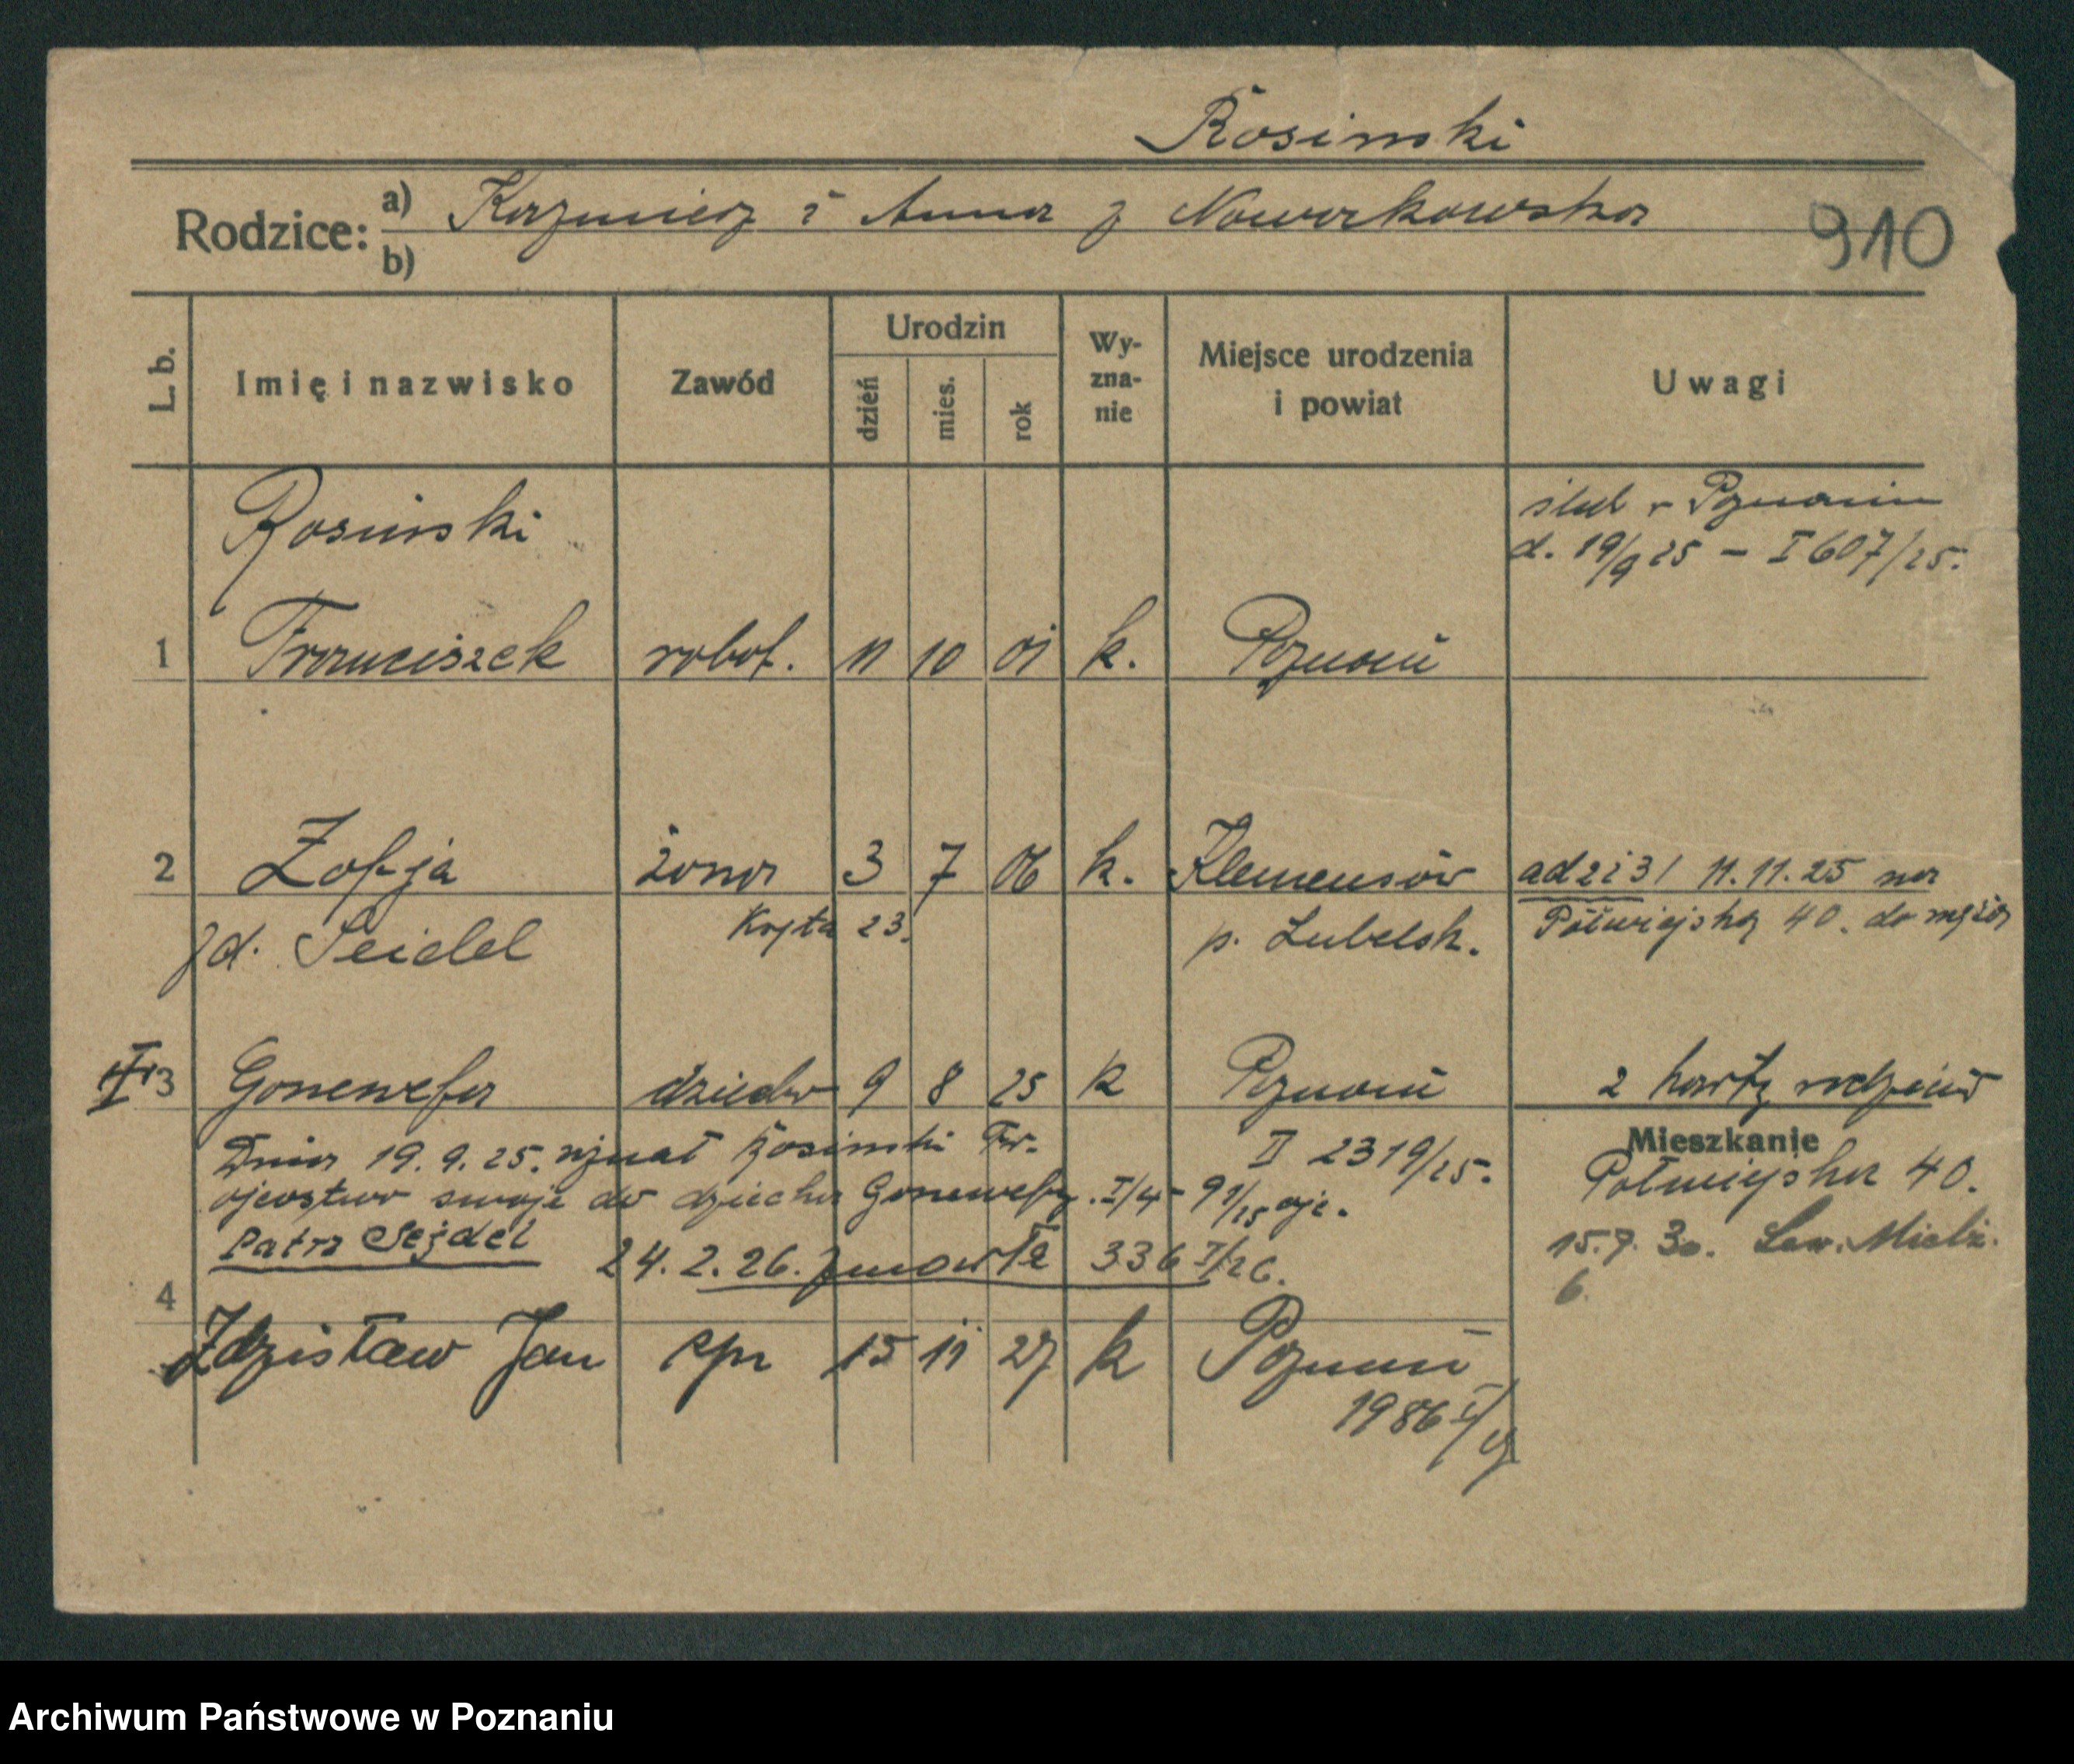 Rosinski
Rodzice: a) Kazimierz i Anna z Nowakowska
b)
910
L. b.
Imię i nazwisko
Zawód
Urodzin
dzień
mies.
rok
Wy-
zna-
nie
Miejsce urodzenia
i powiat
Uwagi
Rosinski
ślub w Poznaniu
d. 19/9 25 – I 607/25.
1 Franciszek robot. 11 10 01 k. Poznań
2 Zofja żona 3 7 06 k. Klemensów
zd. Seidel 23. p. Lubelsk.
11.11.25 na
Półwiejską 40. do męża
3 Genewefa dziecko 9 8 25 k Poznań
2 karty rodzin
II 2319/25.
Dnia 19.9.25. uznał Rosinski Fr.
ojcostwo swoje do dziecka Genewefy. I/4 - 91/25 ojc.
Patrz Sejdel 24.2.26. zmarła 336 I/26.
Mieszkanie
Półwiejska 40.
15.7.30. Mielż.
6.
4
Zdzisław Jan syn 15 11 27 k Poznań
1986 I/27
Archiwum Państwowe w Poznaniu